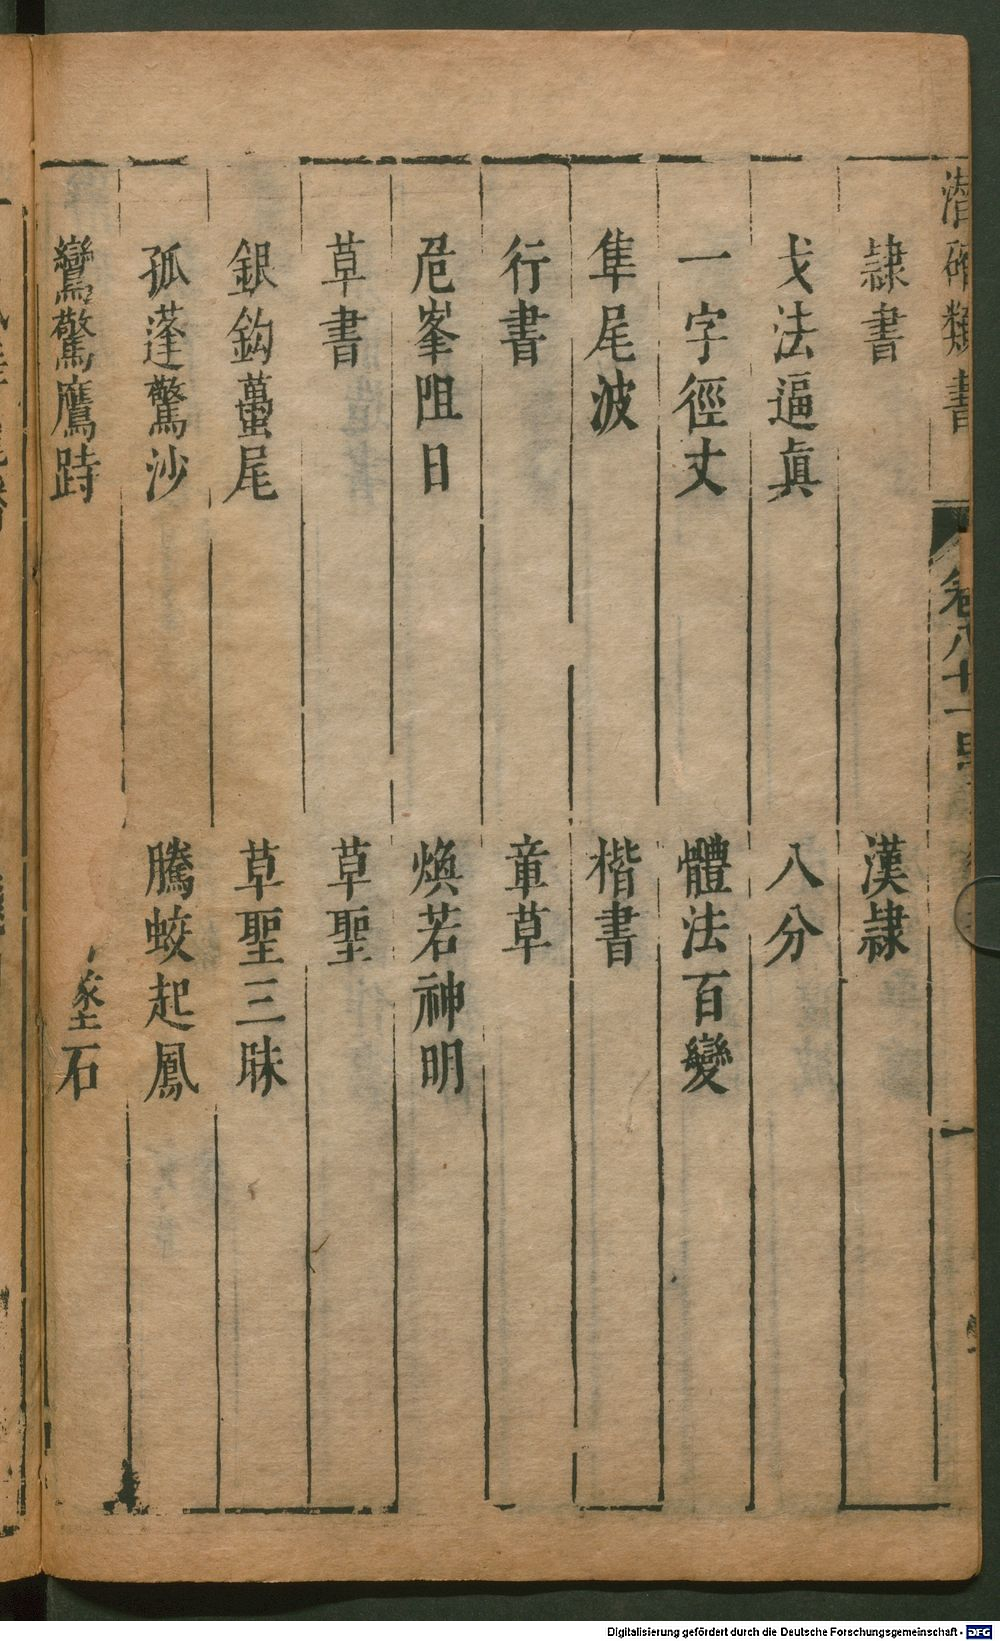 潛確類書 卷八十一
隸書 漢隸
戈法逼眞 八分
一字徑丈 體法百變
隼尾波 楷書
行書 章草
危峯阻日 煥若神明
草書 草聖
銀鈎蠆尾 草聖三昧
孤蓬驚沙 騰蛟起鳳
鸞驚鷹跱 墜石
Digitalisierung gefördert durch die Deutsche Forschungsgemeinschaft - DFG